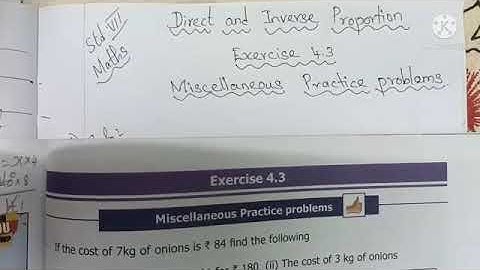 Std VII
Maths
Direct and Inverse Proportion
Exercise 4.3
Miscellaneous Practice problems.
Exercise 4.3
Miscellaneous Practice problems
If the cost of 7kg of onions is ₹ 84 find the following
for ₹ 180 (ii) The cost of 3 kg of onions